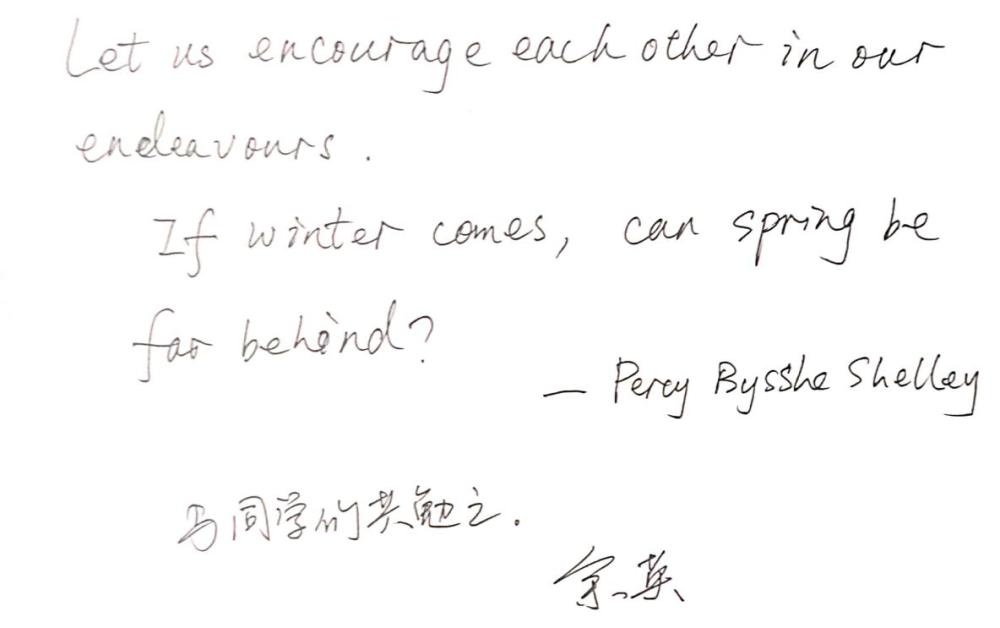 Let us encourage each other in our
endeavours.
If winter comes, can spring be
far behind?
— Percy Bysshe Shelley
与同学们共勉之.